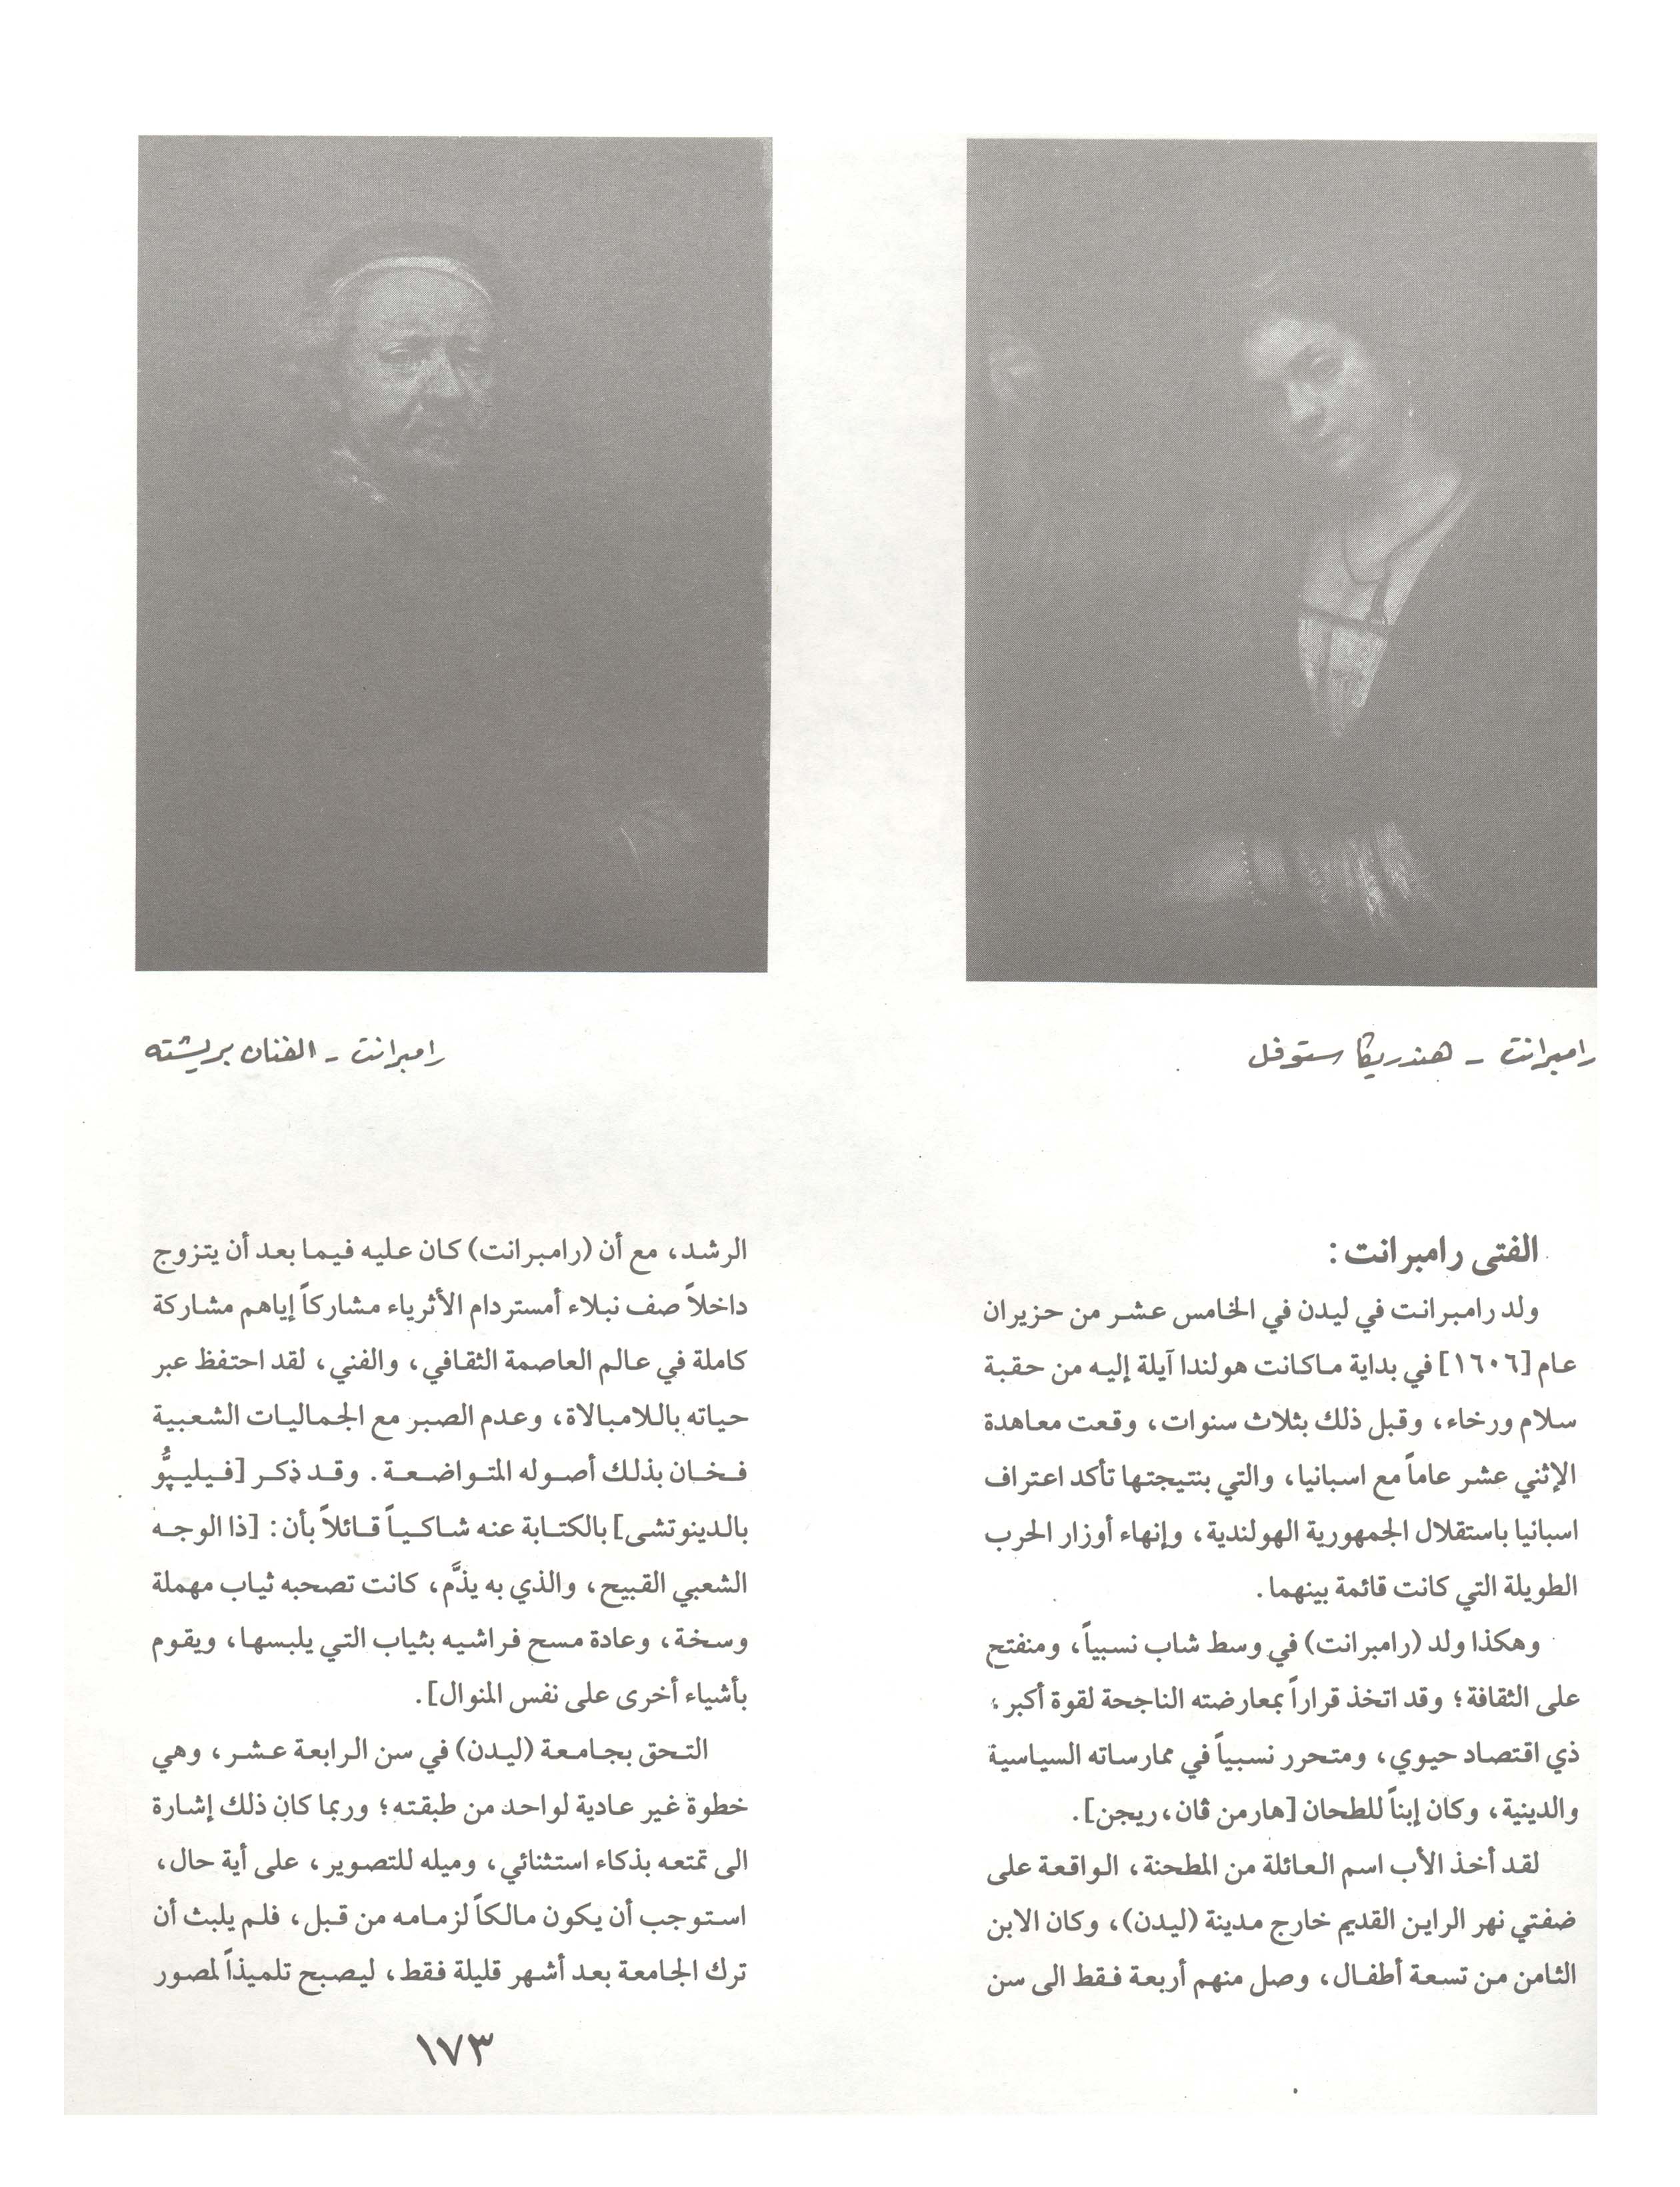 رامبرانت - هندريكا ستوفل
رامبرانت - الفنان بريشته
الفتى رامبرانت :
ولد رامبرانت في ليدن في الخامس عشر من حزيران
عام [١٦٠٦] في بداية ماكانت هولندا آيلة إليه من حقبة
سلام ورخاء، وقبل ذلك بثلاث سنوات، وقعت معاهدة
الإثني عشر عاماً مع اسبانيا، والتي بنتيجتها تأكد اعتراف
اسبانيا باستقلال الجمهورية الهولندية، وإنهاء أوزار الحرب
الطويلة التي كانت قائمة بينهما.
وهكذا ولد (رامبرانت) في وسط شاب نسبياً، ومنفتح
على الثقافة؛ وقد اتخذ قراراً بمعارضته الناجحة لقوة أكبر،
ذي اقتصاد حيوي، ومتحرر نسبياً في ممارساته السياسية
والدينية، وكان إبناً للطحان [هارمن ڤان، ريجن].
لقد أخذ الأب اسم العائلة من المطحنة، الواقعة على
ضفتي نهر الراين القديم خارج مدينة (ليدن)، وكان الابن
الثامن من تسعة أطفال، وصل منهم أربعة فقط الى سن
الرشد، مع أن (رامبرانت) كان عليه فيما بعد أن يتزوج
داخلاً صف نبلاء أمستردام الأثرياء مشاركاً إياهم مشاركة
كاملة في عالم العاصمة الثقافي، والفني، لقد احتفظ عبر
حياته باللامبالاة، وعدم الصبر مع الجماليات الشعبية
فخان بذلك أصوله المتواضعة. وقد ذكر [فيليپُّو
بالدينوتشى] بالكتابة عنه شاكياً قائلاً بأن: [ذا الوجه
الشعبي القبيح، والذي به يذَّم، كانت تصحبه ثياب مهملة
وسخة، وعادة مسح فراشيه بثياب التي يلبسها، ويقوم
بأشياء أخرى على نفس المنوال].
التحق بجامعة (ليدن) في سن الرابعة عشر، وهي
خطوة غير عادية لواحد من طبقته؛ وربما كان ذلك إشارة
الى تمتعه بذكاء استثنائي، وميله للتصوير، على أية حال،
استوجب أن يكون مالكاً لزمامه من قبل، فلم يلبث أن
ترك الجامعة بعد أشهر قليلة فقط، ليصبح تلميذاً لمصور
١٧٣